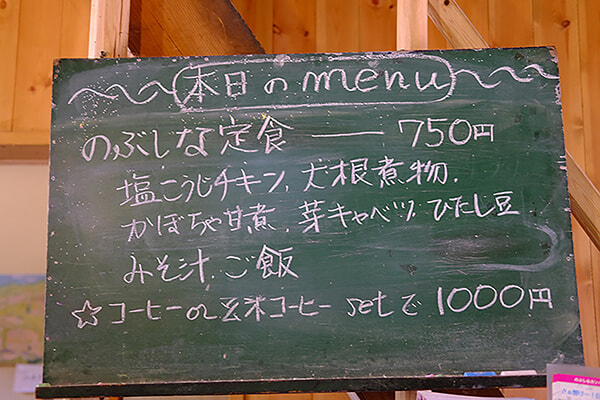 本日のmenu
のぶしな定食 ― 750円
塩こうじチキン、犬根煮物、
かぼちゃ甘煮、芽キャベツ、ひたし豆
みそ汁、ご飯
☆コーヒー or 玄米コーヒー setで 1000円